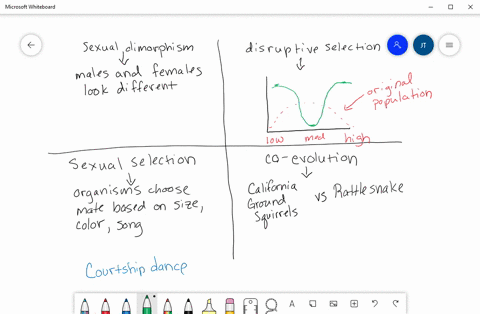 Microsoft Whiteboard
JT
sexual dimorphism
males and females
look different
disruptive selection
original
population
low med high
Sexual selection
organisms choose
mate based on size,
color, song
Courtship dance
co-evolution
California
Ground
Squirrels
vs Rattlesnake
A